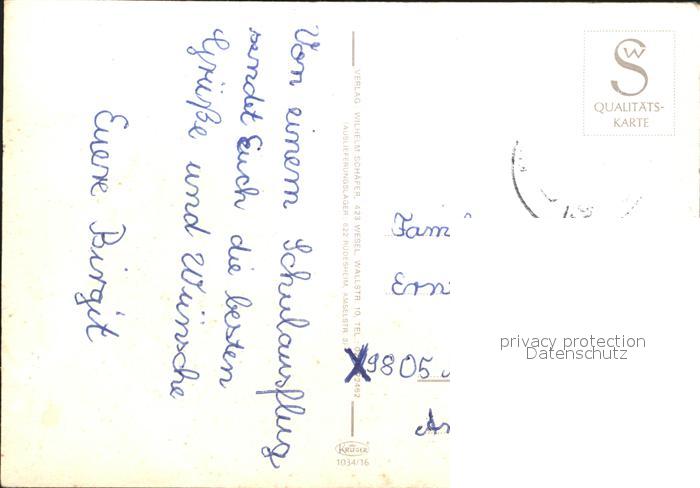 Von einem Schulausflug
sendet Euch die besten
Grüße und Wünsche
Euere Birgit
VERLAG WILHELM SCHÄFER, 423 WESEL, WALLSTR. 10, TEL.
(AUSLIEFERUNGSLAGER: 622 RÜDESHEIM, AMSELSTR.
W
S
QUALITÄTS-
KARTE
Fam
Ern
X9805
privacy protection
Datenschutz
KRÜGER
1034/16